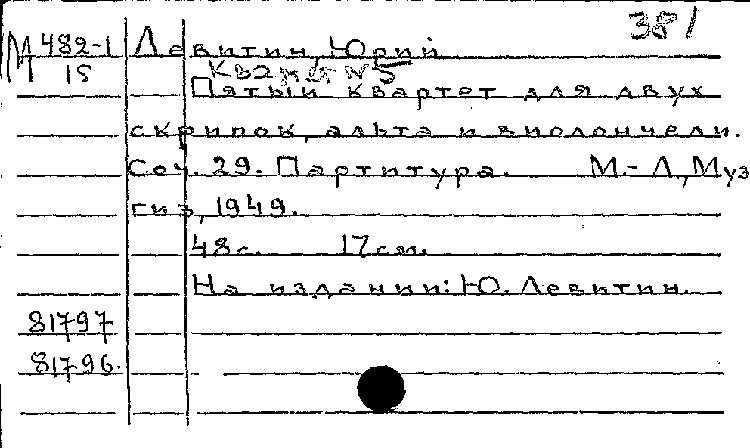 381
М 482-1 Левитин, Юрий
15 Квартет №5
Пятый квартет для двух
скрипок, альта и виолончели.
Соч. 29. Партитура. М.-Л., Муз
гиз, 1949.
48с. 17см.
На издании: Ю. Левитин.
81797
81796.